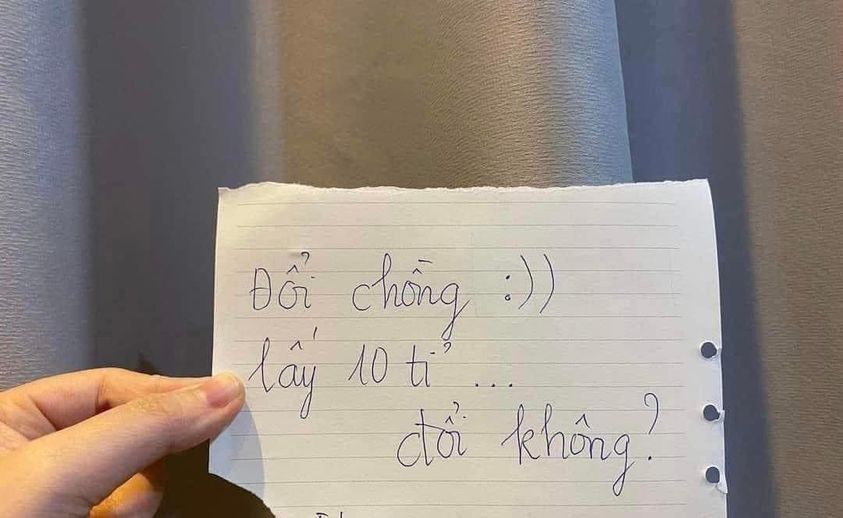 Đổi chồng :))
lấy 10 tỉ ...
đổi không?